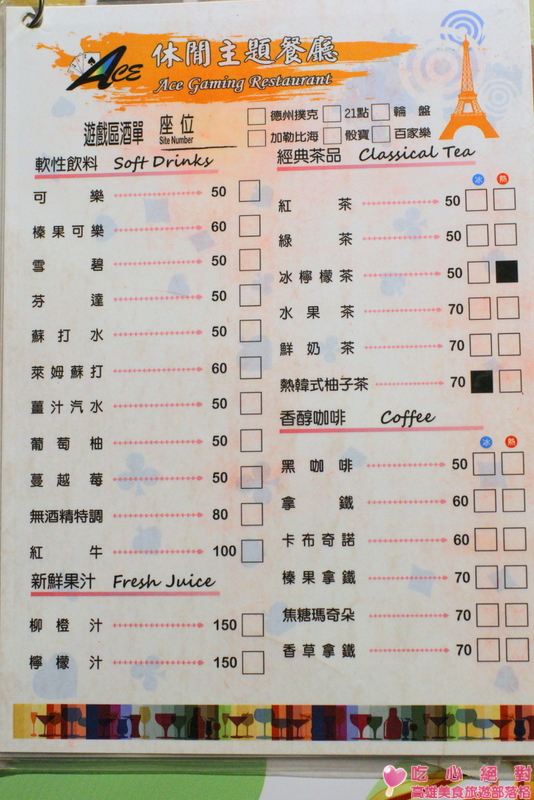 ACE 休閒主題餐廳
Ace Gaming Restaurant
遊戲區酒單 座位 Site Number
德州撲克 21點 輪盤
加勒比海 骰寶 百家樂
軟性飲料 Soft Drinks
可樂 50
榛果可樂 60
雪碧 50
芬達 50
蘇打水 50
萊姆蘇打 60
薑汁汽水 50
葡萄柚 50
蔓越莓 50
無酒精特調 80
紅牛 100
新鮮果汁 Fresh Juice
柳橙汁 150
檸檬汁 150
經典茶品 Classical Tea
冰 熱
紅茶 50
綠茶 50
冰檸檬茶 50
水果茶 70
鮮奶茶 70
熱韓式柚子茶 70
香醇咖啡 Coffee
冰 熱
黑咖啡 50
拿鐵 60
卡布奇諾 60
榛果拿鐵 70
焦糖瑪奇朵 70
香草拿鐵 70
吃心絕對
高雄美食旅遊部落格